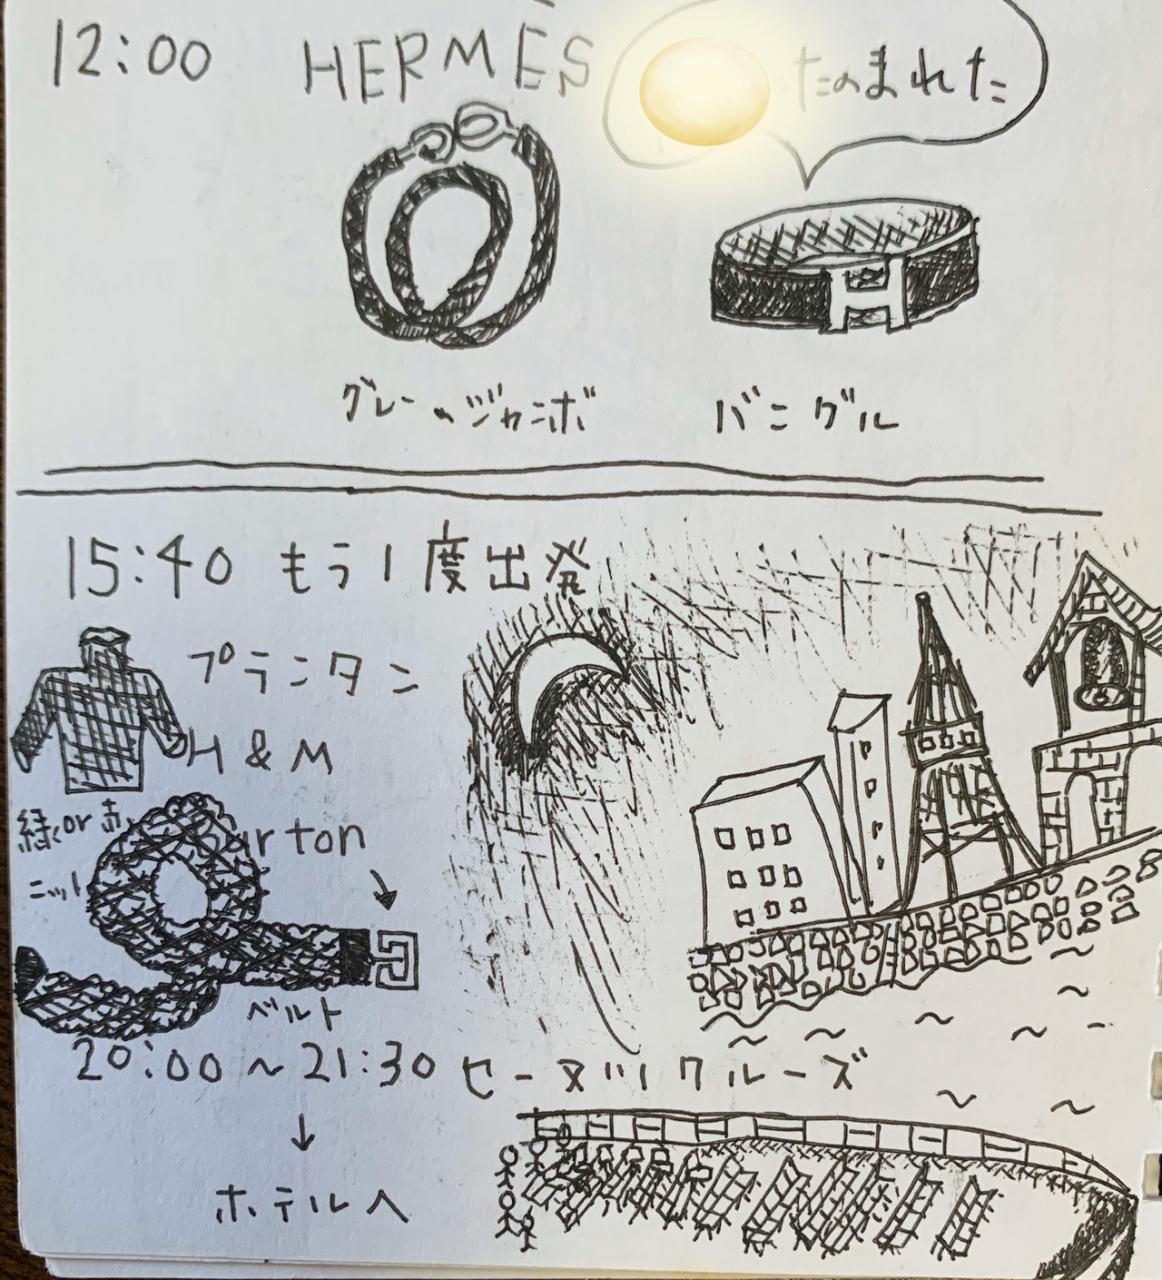 12:00 HERMÈS
たのまれた
グレーのジャンボ
バングル
15:40 もう1度出発
プランタン
H&M
緑or赤
ニット
arton
ベルト
20:00～21:30 セーヌ川クルーズ
↓
ホテルへ